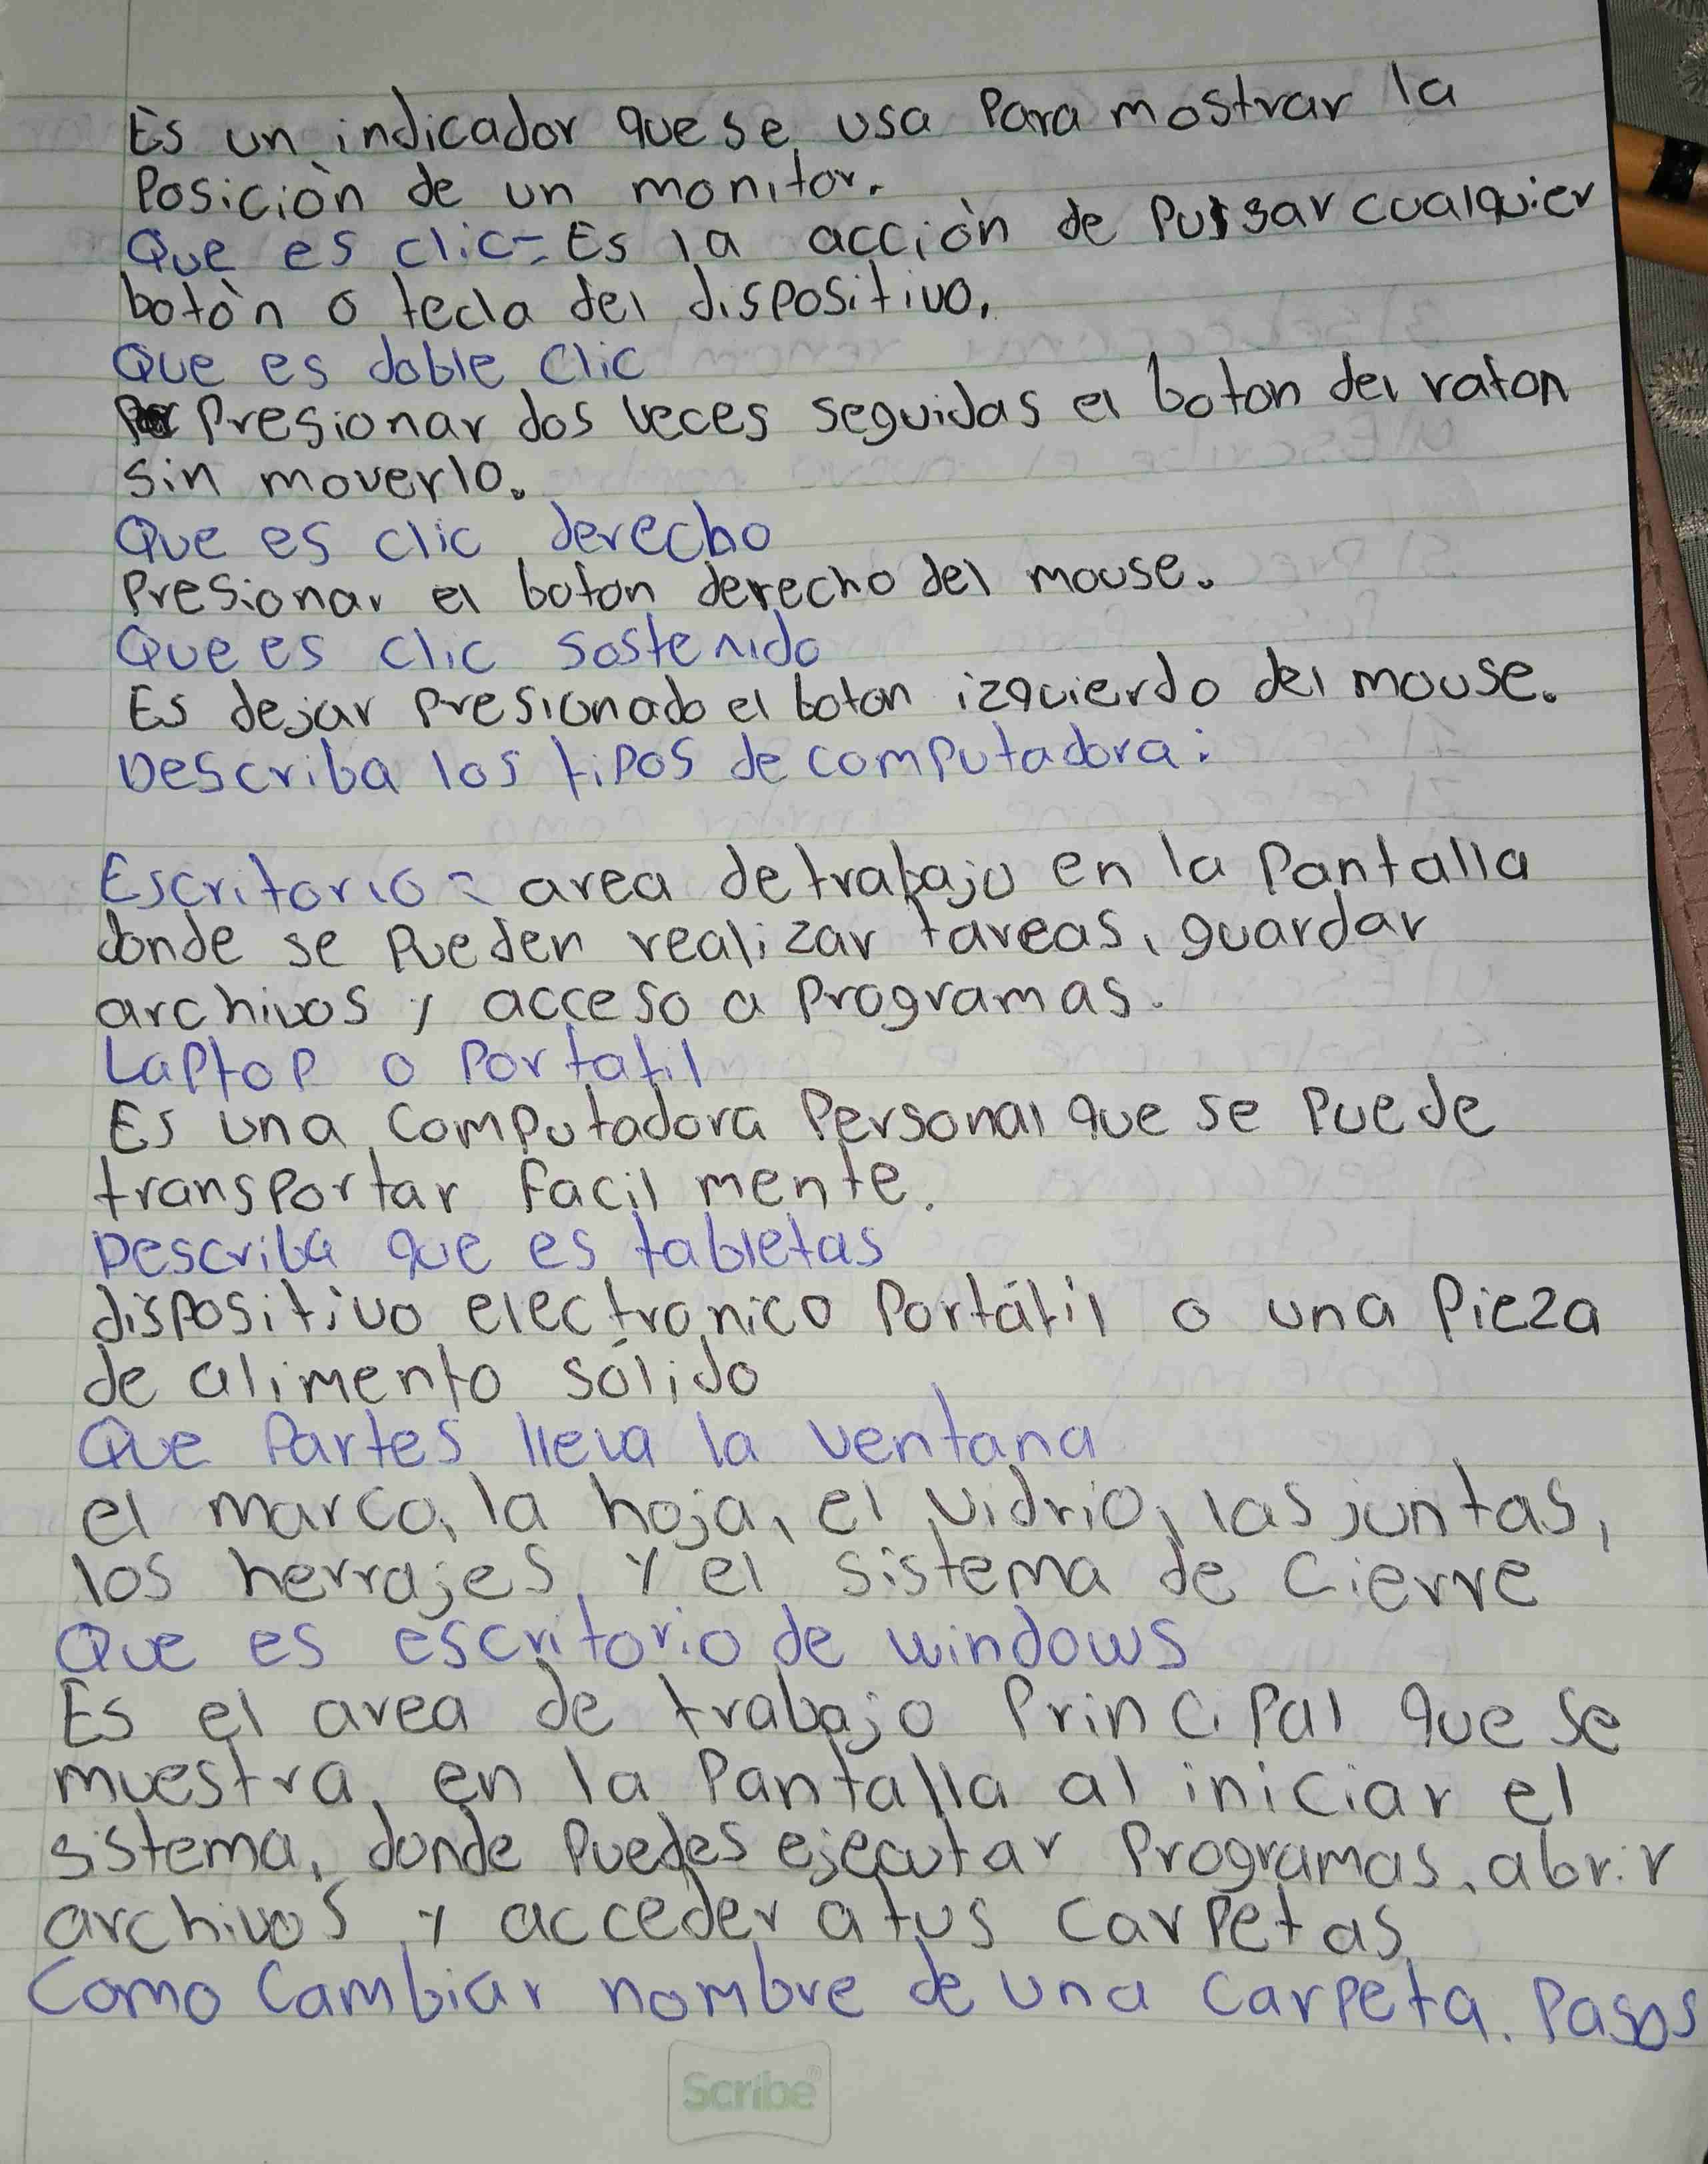 Es un indicador que se usa Para mostrar la
Posiciòn de un monitor.
Que es clic= Es la acciòn de Pulsar cualquier
botòn o tecla del dispositivo,
Que es doble clic
Presionar dos veces seguidas el boton del raton
sin moverlo.
Que es clic derecho
Presionar el boton derecho del mouse.
Que es clic sostenido
Es dejar presionado el boton izquierdo del mouse.
Describa los tipos de computadora:
Escritorio = area de trabajo en la Pantalla
donde se Pueden realizar tareas, guardar
archivos y acceso a Programas.
Laptop o Portatil
Es una computadora Personal que se Puede
transportar facil mente.
Describa que es tabletas
dispositivo electronico Portátil o una Pieza
de alimento sólido
Que Partes lleva la ventana
el marco, la hoja, el vidrio, las juntas,
los herrajes, y el sistema de cierre
Que es escritorio de windows
Es el area de trabajo Principal que se
muestra en la Pantalla al iniciar el
sistema, donde Puedes ejecutar Programas, abrir
archivos y acceder a tus carpetas
Como Cambiar nombre de una carpeta. Pasos
Scribe®